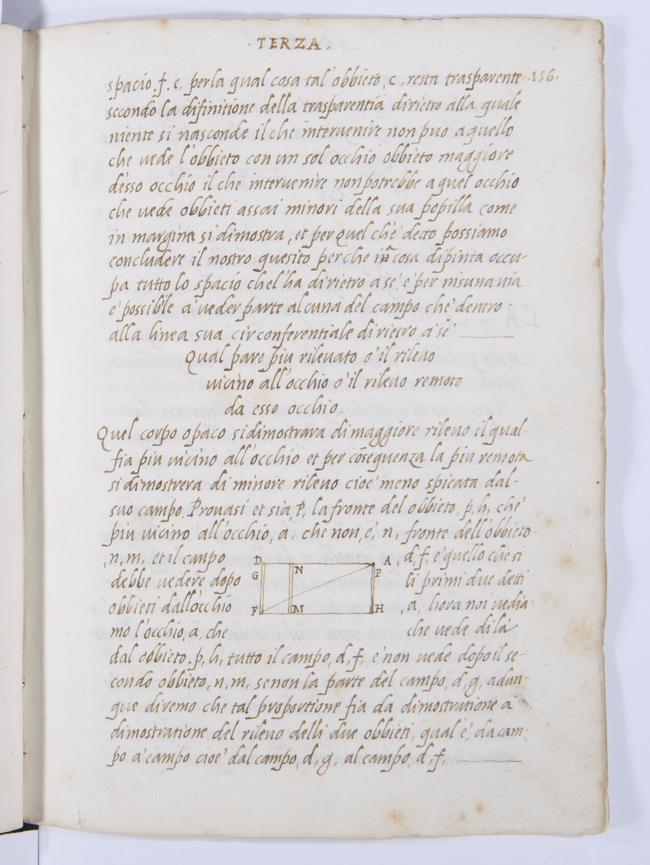 · TERZA ·
spacio .f. c. per la qual cosa tal' obbieto, c, resta trasparente .156.
secondo la difinitione della trasparentia dirietro alla quale
niente si nasconde il che intervenire non puo a quello
che vede l'obbieto con un sol occhio obbieto maggiore
d'esso occhio il che intervenire non potrebbe a quel occhio
che vede obbieti assai minori della sua popilla come
in margine si dimostra, et per quel ch'e detto possiamo
concludere il nostro quesito perche cosa dipinta occu-
pa tutto lo spacio chel'ha dirietro a se, e per nisuna via
e' possibile a veder parte alcuna del campo che' dentro
alla linea sua circonferentiale dirietro a se
Qual pare piu rilevato o' il rilevo
vicino all'occhio o' il rilevo remoto
da esso occhio.
Quel corpo opaco si dimostrara di maggiore rilevo il qual
fia piu vicino all'occhio et per cōseguenza la piu remota
si dimostrera di minore rilevo cioe' meno spicata dal
suo campo. Provasi et sia, P, la fronte del obbieto, p, h, che'
piu vicino all'occhio, a, che non, e', n, fronte dell'obbieto
, n, m, et il campo D N A , d, f, e' quello che si
debbe vedere dopo G P li primi due detti
obbieti dall'occhio F M H , a, hora noi vedia
mo l'occhio, a, che che vede di la
dal obbieto. p, h, tutto il campo, d, f, e' non vede dopo il se-
condo obbieto, n, m, senon la parte del campo, d, g, adun
que diremo che tal proportione fia da dimostratione a
dimostratione del rilevo delli due obbieti, qual e', da cam
po a' campo cioe' dal campo, d, g, al campo, d, f,